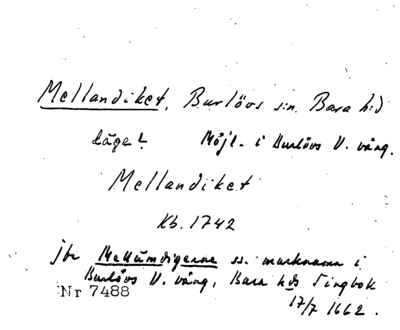 Mellandiket, Burlövs sn. Bara hd
läge? Möjl. i Burlövs V. vång.
Mellandiket
Kb. 1742
jfr Mellumdigerne ss. marknamn i
Burlövs V. vång, Bara hds Tingbok
Nr 7488 17/7 1662.